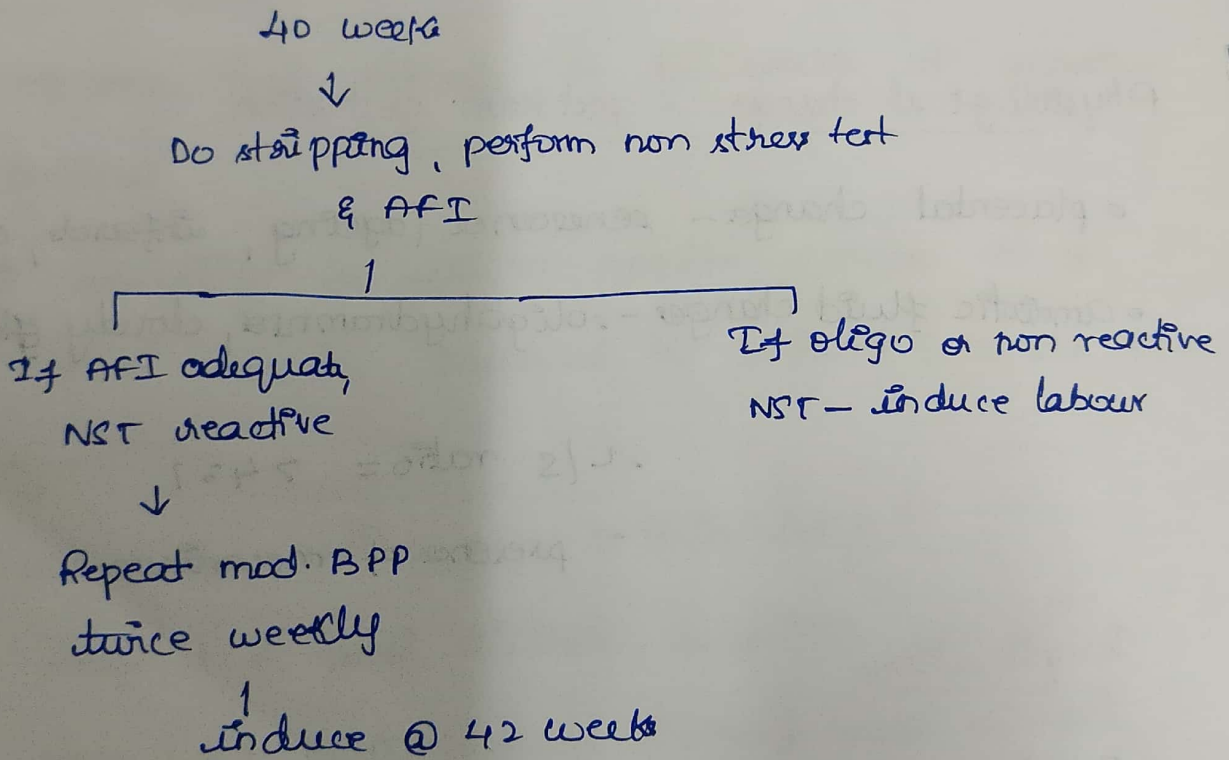 40 weeks
↓
Do stripping, perform non stress test
& AFI
If AFI adequate,
NST reactive
↓
Repeat mod. BPP
twice weekly
induce @ 42 weeks
If oligo or non reactive
NST - induce labour